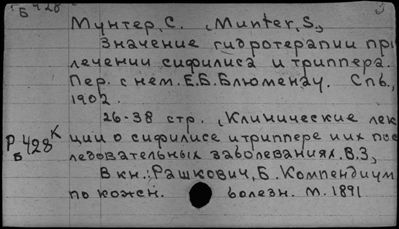 Б 428 3
Мунтер, С. (Munter, S.)
Значение гидротерапии при
лечении сифилиса и триппера.
Пер. с нем. Е.Б. Блюменау. Спб.,
1902.
26-38 стр. (Клинические лек
Р Б 428 К ции о сифилисе и триппере и их пос
ледовательных заболеваниях. В.3)
В кн.: Рашкович, Б. Компендиум
по кожн. болезн. М. 1891